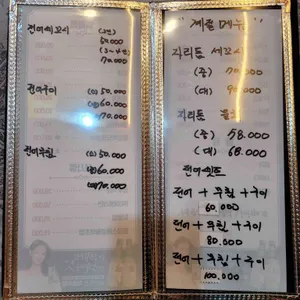 전어세꼬시 (2인)
50.000
(3~4인)
70.000
전어구이 (小) 50.000
(中) 60.000
(大) 70.000
전어무침 (小) 50.000
(中) 60.000
(大) 70.000
"계절 메뉴"
지리돔 세꼬시
(중) 70.000
(대)
지리돔 물회
(중) 58.000
(대) 68.000
전어세트
전어 + 무침 + 구이
60.000
전어 + 무침 + 구이
80.000
전어 + 무침 + 구이
100.000